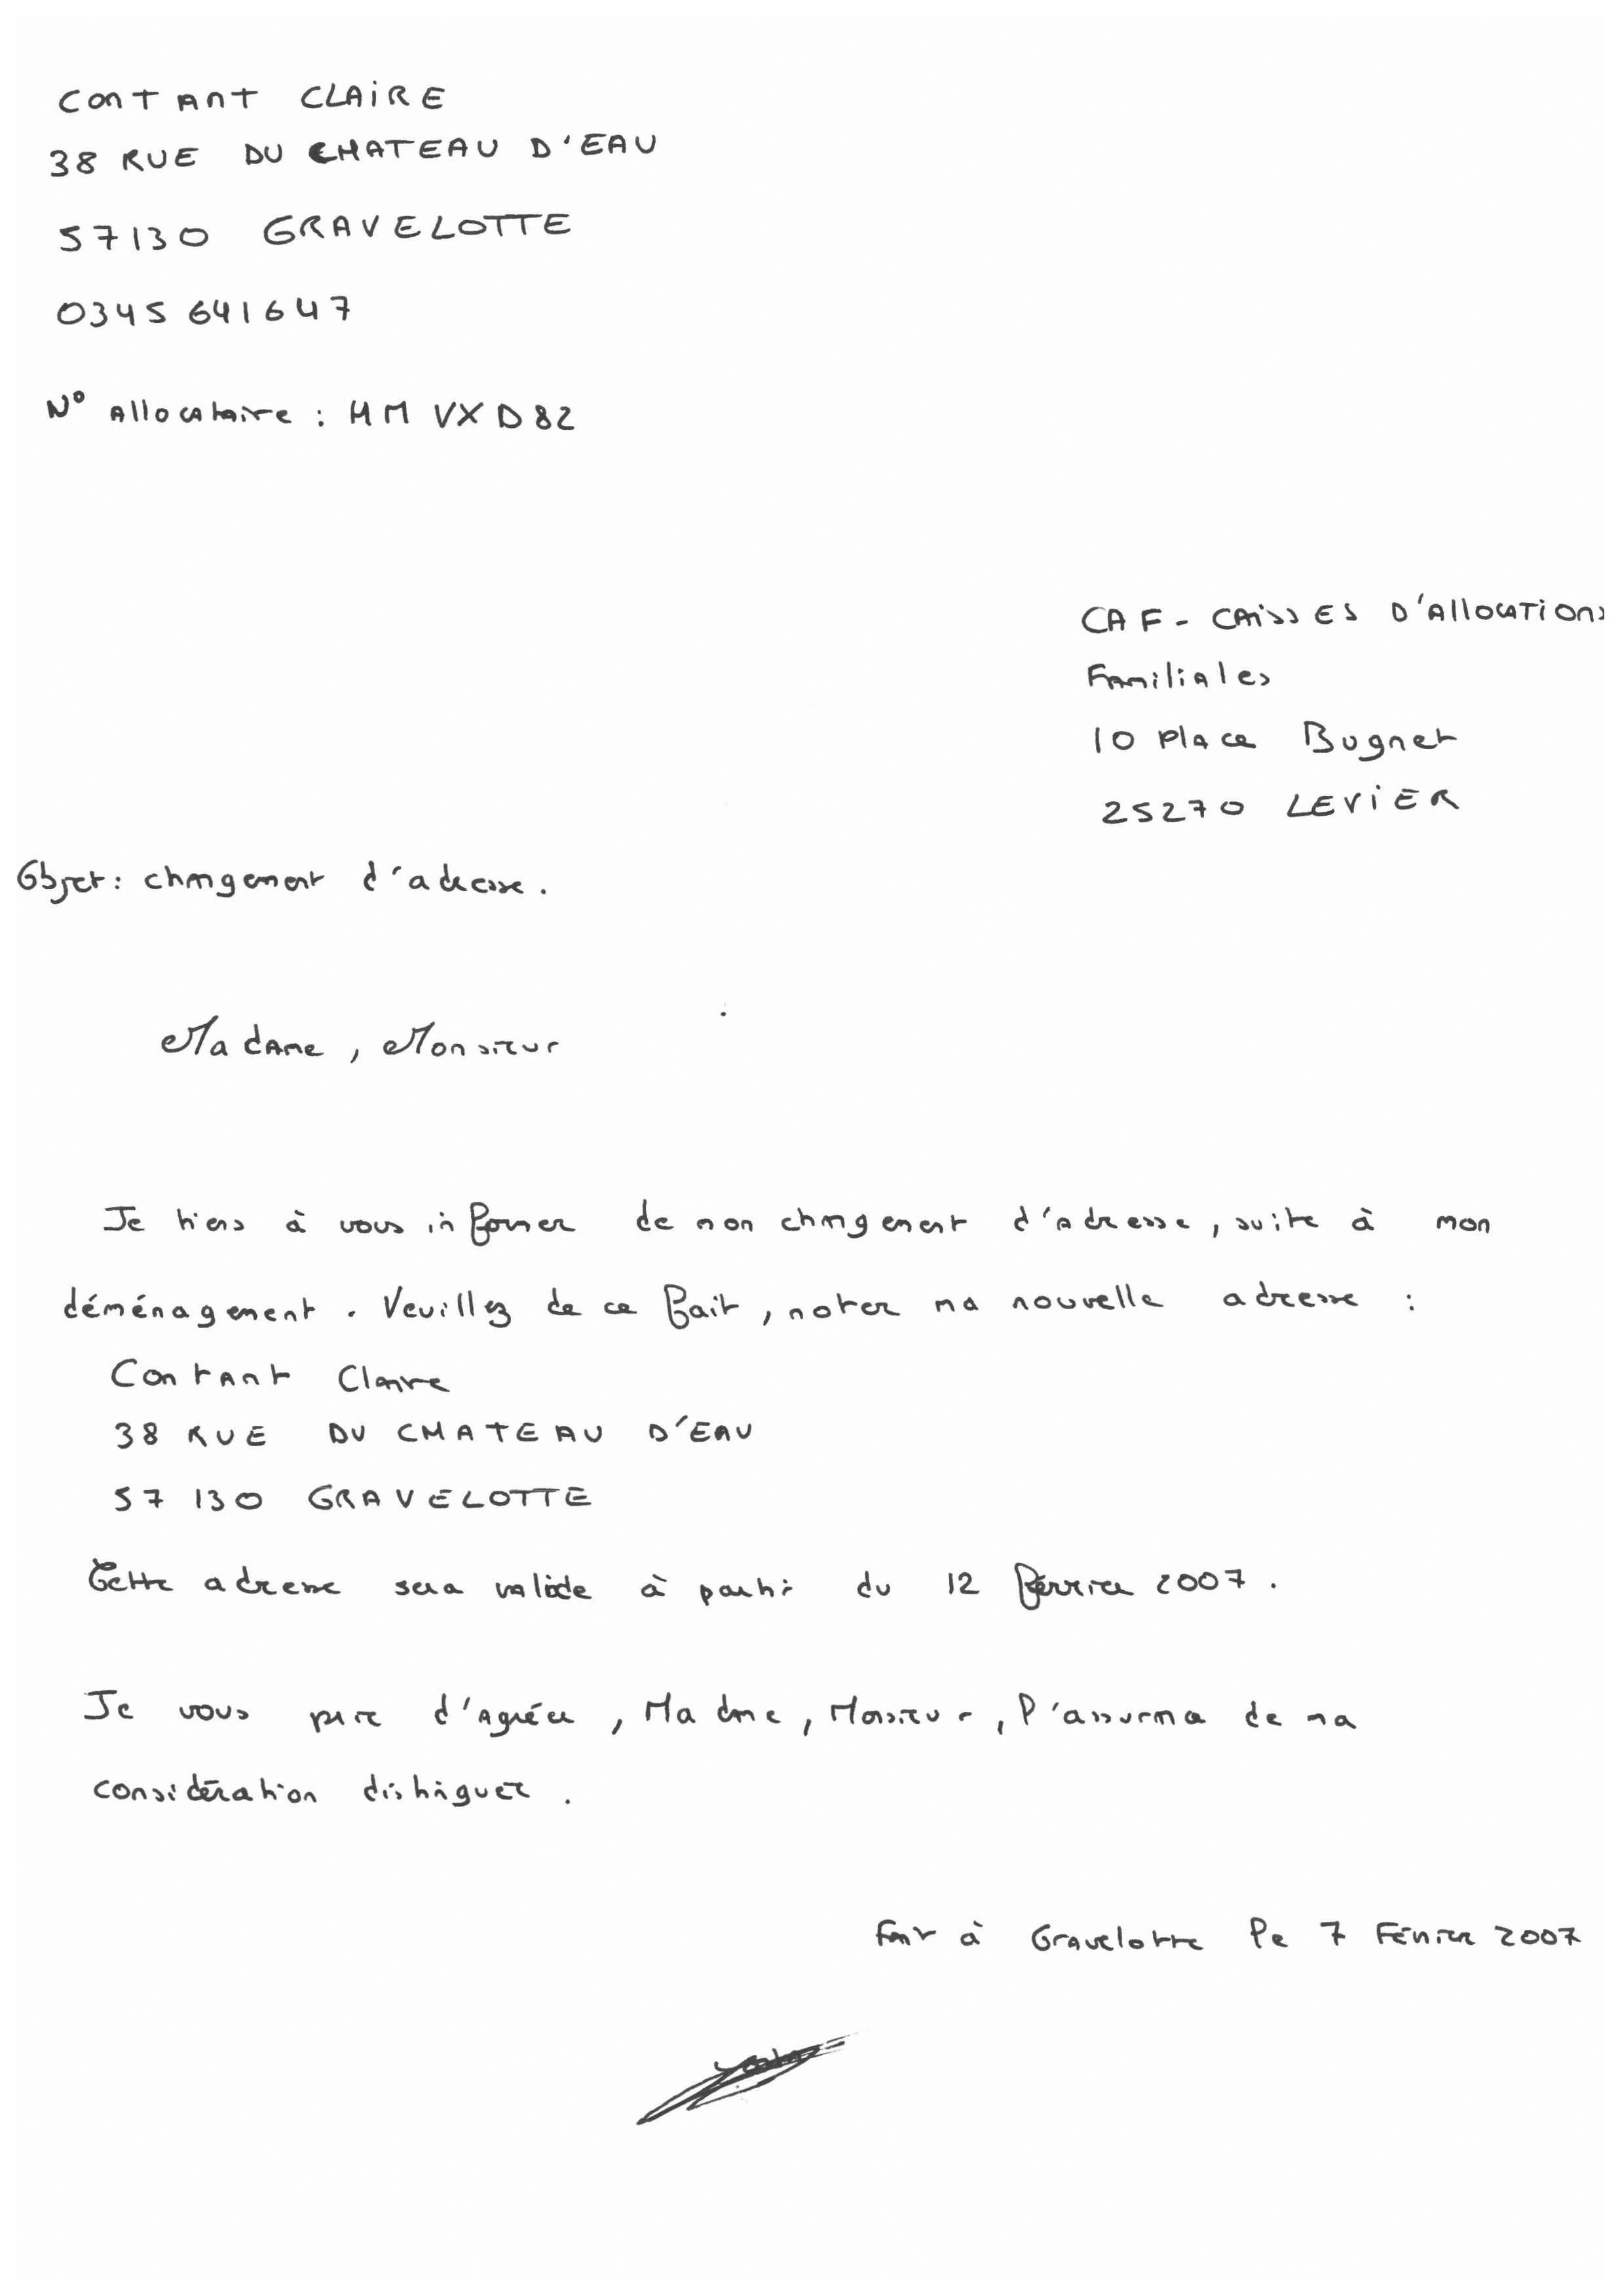 CONTANT CLAIRE
38 RUE DU CHATEAU D'EAU
57130 GRAVELOTTE
0345 641647
N° Allocataire : HMVXD82
CAF - CAISSES D'ALLOCATIONS
Familiales
10 Place Bugnet
25270 LEVIER
Objet : changement d'adresse.
Madame, Monsieur
Je tiens à vous informer de mon changement d'adresse, suite à mon
déménagement. Veuillez de ce fait, noter ma nouvelle adresse :
Contant Claire
38 RUE DU CHATEAU D'EAU
57130 GRAVELOTTE
Cette adresse sera valide à partir du 12 février 2007.
Je vous prie d'agréer, Madame, Monsieur, l'assurance de ma
considération distinguée.
Fait à Gravelotte le 7 Février 2007